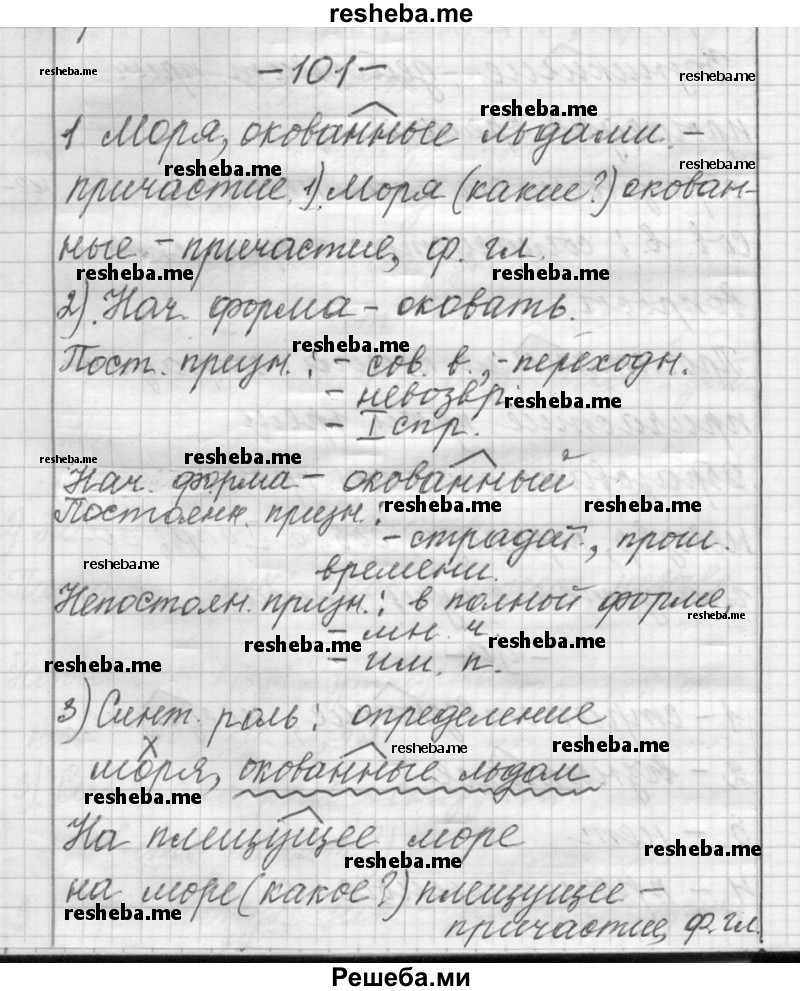 resheba.me
-101-
resheba.me
resheba.me
resheba.me
1 Моря, окованные льдами -
resheba.me
resheba.me
причастие. 1). Моря (какие?) окован-
ные - причастие, ф. гл.
resheba.me
resheba.me
2). Нач. форма - оковать.
resheba.me
Пост. призн.: - сов. в.; - переходн.
- невозвр.
resheba.me
- I спр.
resheba.me
resheba.me
Нач. форма - окованный
resheba.me
resheba.me
Постоянн. призн.:
- страдат., прош.
времени.
resheba.me
Непостоян. призн.: в полной форме,
resheba.me
- мн. ч.
resheba.me
resheba.me
- им. п.
resheba.me
3) Синт. роль: определение
resheba.me
resheba.me
х
моря, окованные льдам
resheba.me
На плещущее море
resheba.me
resheba.me
на море (какое?) плещущее -
resheba.me
причастие, ф. гл.
Решеба.ми